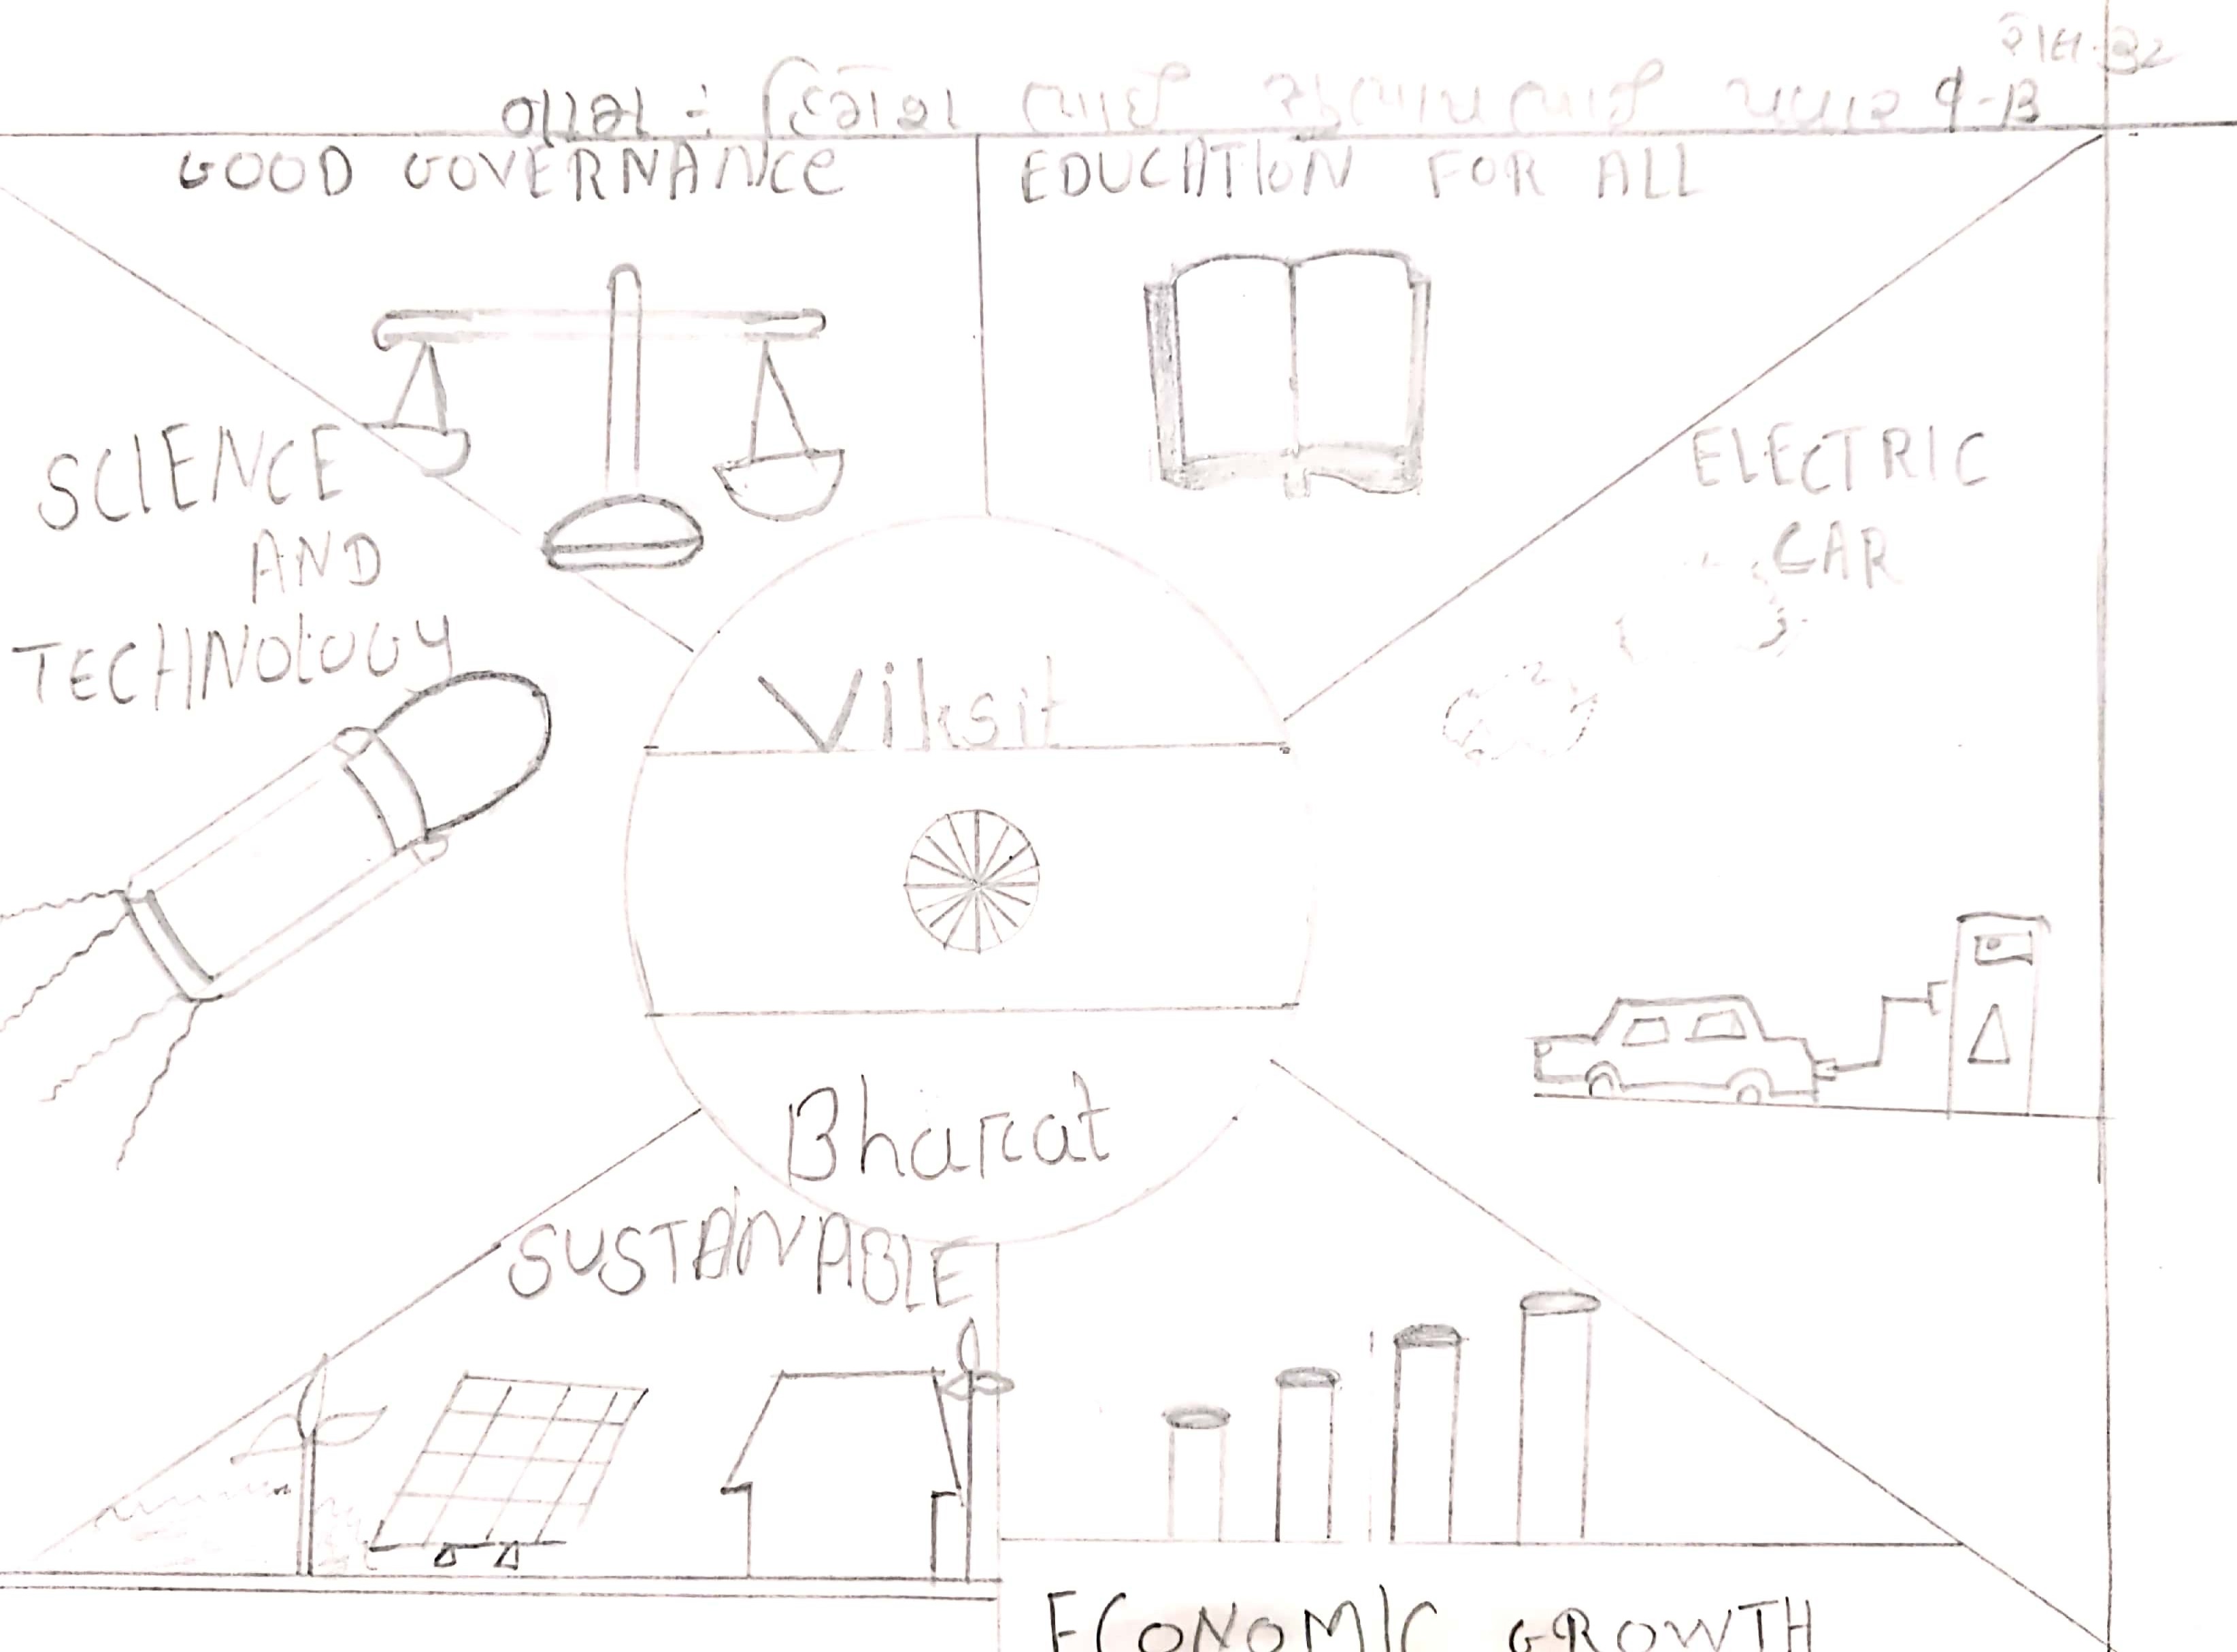 GOOD GOVERNANCE
EDUCATION FOR ALL
SCIENCE
AND
TECHNOLOGY
ELECTRIC
CAR
Viksit
Bharat
SUSTAINABLE
ECONOMIC GROWTH
9-B